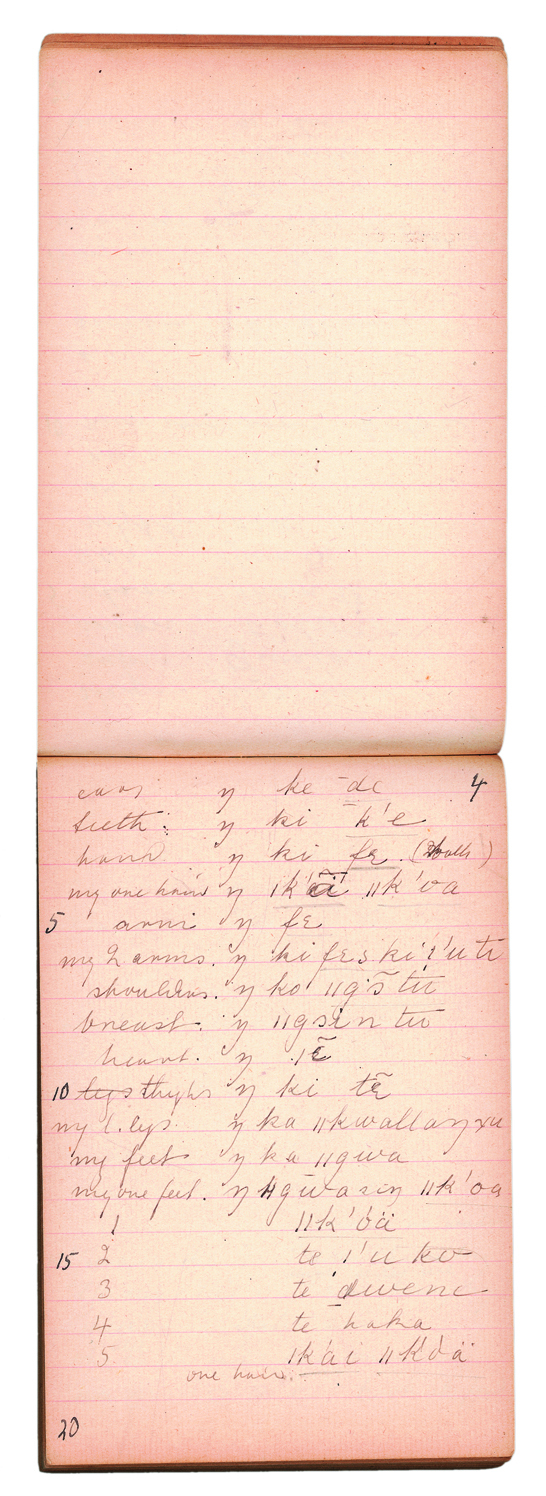 ears ŋ ke de 4
teeth: ŋ ki k'e
hand ŋ ki fɛ. (2 both)
my one hand ŋ ǀk'ãi ǁk'oa
5 arm ŋ fɛ
my 2 arms. ŋ ki fɛs ki ǀ'u te
shoulders. ŋ ko ǁgs̄ tu
breast. ŋ ǁgsin tu
heart. ŋ ǀẽ
10 legs thighs ŋ ki tẽ
my legs. ŋ ka ǁkwallaŋ xu
my feet ŋ ka ǁgwa
my one feet. ŋ ǁgwa siŋ ǁk'oa
1 ǁk'oä
15 2 te ǀ'u ko
3 te 'dwene
4 te haka
5 ǀk'ai ǁk'oä
one hand.
20